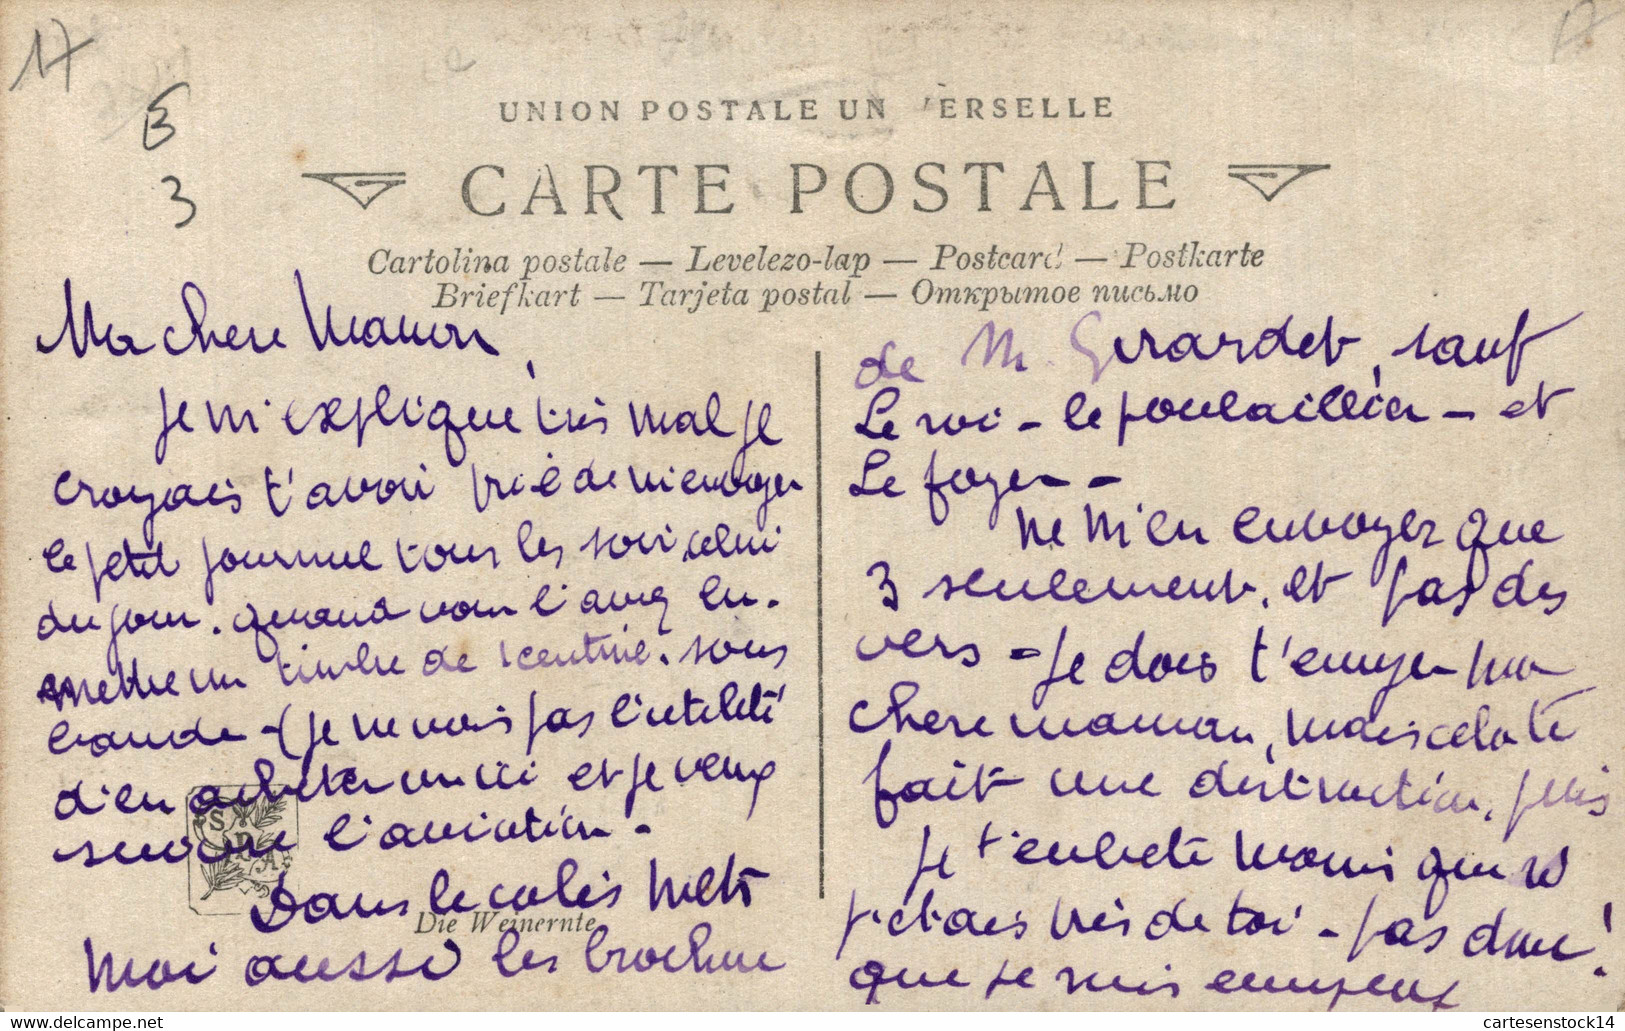 17
17
3
3
UNION POSTALE UN  ERSELLE
CARTE POSTALE
Cartolina postale — Levelezo-lap — Postcard — Postkarte
Briefkart — Tarjeta postal — Открытое письмо
Ma chere Maman,
je m'explique très mal je
croyais t'avoir prié de m'envoyer
le petit journal tous les soir, celui
du jour. quand vous l'avez lu.
mettre un timbre de 1 centime. sous
bande - (je ne vois pas l'utilité
d'en acheter un ici et je veux
suivre l'aviation -
Dans le colis mets
moi aussi les brochure
de M. Girardet, sauf
Le roi - le poulailler - et
Le foyer -
ne m'en envoyer que
3 seulement, et pas des
vers = je dois t'ennuyer ma
chere maman, mais cela te
fait une distraction, puis
je t'enbete moins que si
j'etais près de toi - pas donc!
que je suis ennuyeux
S D R A
Die Weinernte
cartesenstock14